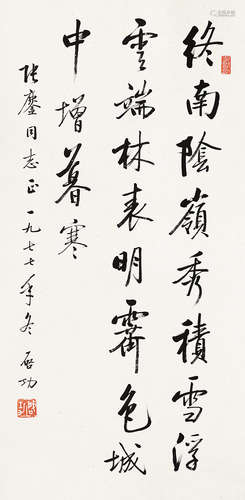 終南陰嶺秀積雪浮
雲端林表明霽色城
中增暮寒
張鏖同志正一九七七年冬啓功